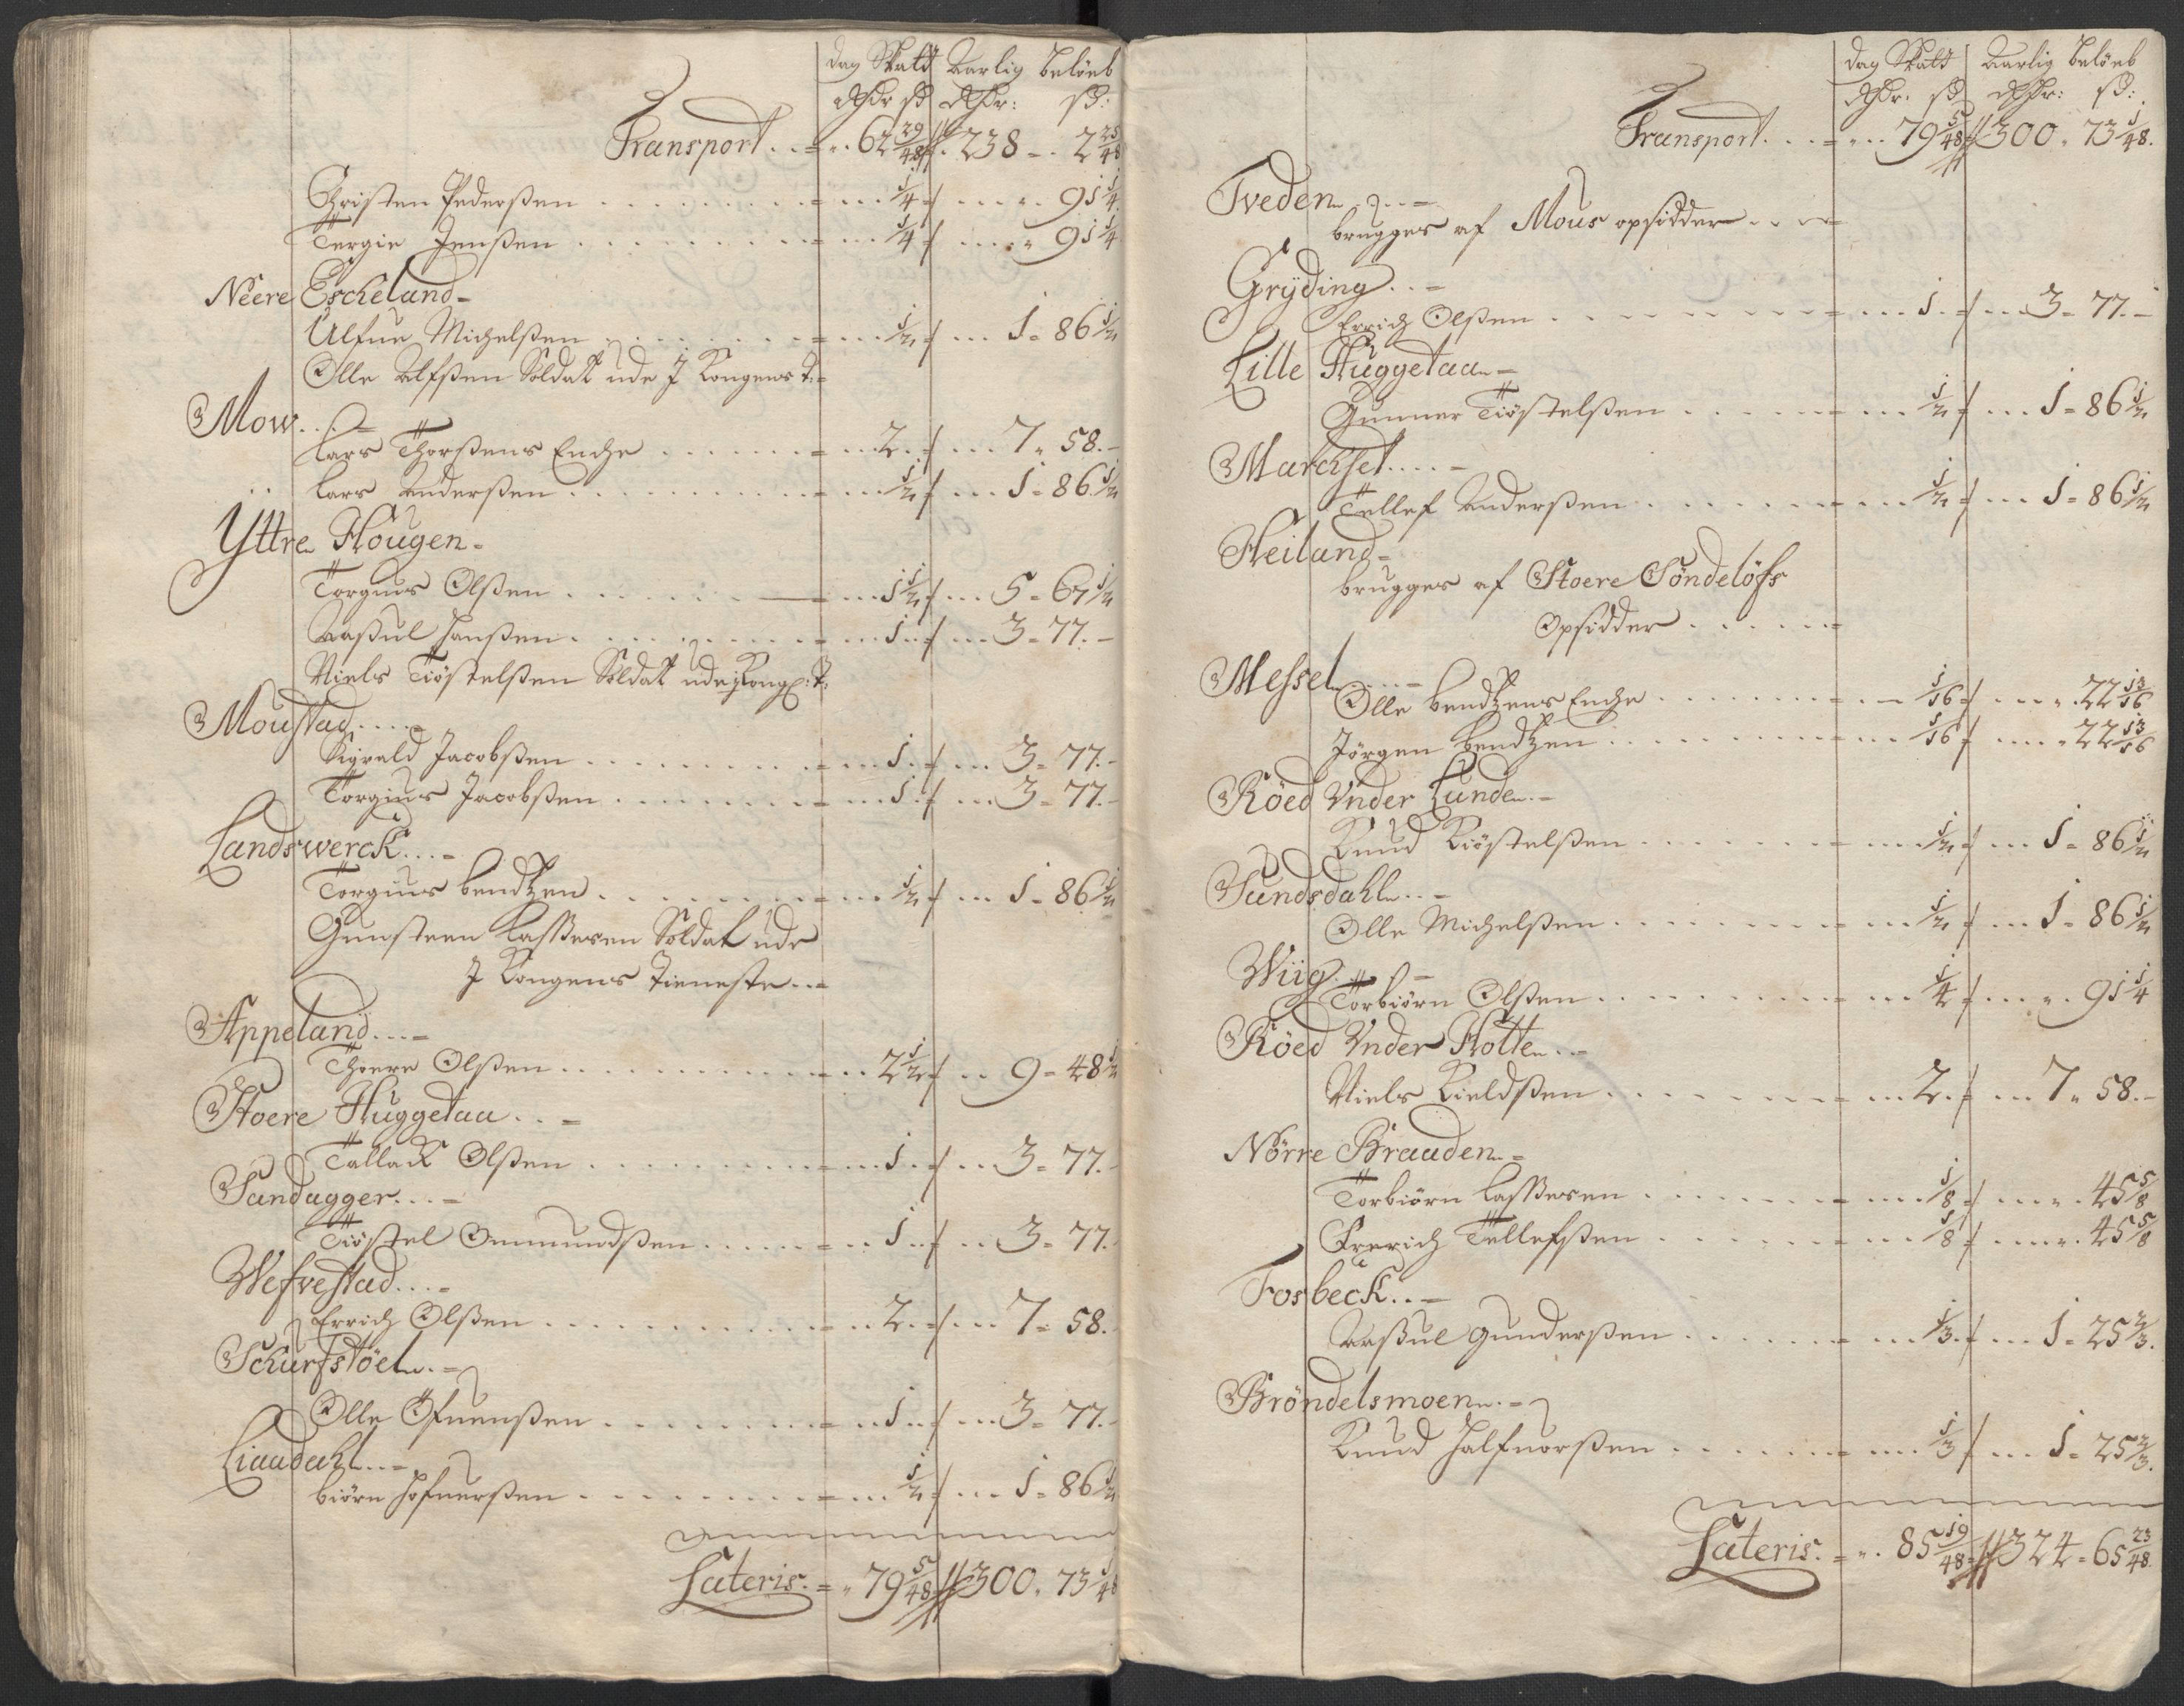 dag Skatt Aarlig beløeb
rthdr sß rthdr: sß:
Transport .. 62 29/48 238 - 2 25/48
Christen Pedersßen 1/4 91 1/4
Tergie Jensßen 1/4 91 1/4
Neere Escheland
Ulfue Michelsßen 1/2 1 - 86 1/2
Olle Ulfsßen Soldat ude J Kongens T:
Mow
Lars Thorsßens Enche 2 7 - 58
Lars Andersßen 1/2 1 - 86 1/2
Yttre Hougen
Torgius Olsßen 1 1/2 5 - 67 1/2
Aasßul Hansßen 1 3 - 77
Niels Tiøstelsßen Soldat ude j Kong: T:
Moustad
Sigvald Jacobsßen 1 3 - 77
Torgius Jacobsßen 1 3 - 77
Landswerck
Torgius bendtzen 1/2 1 - 86 1/2
Gunsteen Lasßesen Soldat ude
J Kongens Tieneste
Appeland
Thoere Olsßen 2 1/2 9 - 48 1/2
Stoere Huggetaa
Tallack Olsßen 1 3 - 77
Sandagger
Tiøstel Ommundsßen 1 3 - 77
Wefvestad
Errich Olsßen 2 7 - 58
Schurfstøel
Olle Ofuensßen 1 3 - 77
Liaadahl
biørn Hofuersßen 1/2 1 - 86 1/2
Lateris 79 5/48 300 - 73 1/48
dag Skatt Aarlig beløeb
rthdr: sß rthdr: sß:
Transport 79 5/48 300 - 73 1/48
Tveden
brugges af Mous opsidder
Gryding
Errich Olsßen 1 3 - 77
Lille Huggetaa
Gunner Tiøstelsßen 1/2 1 - 86 1/2
Marchset
Tellef Andersßen 1/2 1 - 86 1/2
Heiland
brugges af Stoere Søndeløfs
Opsidder
Messel
Olle bendtzens Enche 1/16 22 13/16
Jørgen bendtzen 1/16 22 13/16
Røed Vnder Lunde
Knud Kiøstelsßen 1/2 1 - 86 1/2
Sundsdahl
Olle Michelsßen 1/2 1 - 86 1/2
Wiig
Torbiørn Olsßen 1/4 91 1/4
Røed Vnder Holte
Niels Kieldsßen 2 7 - 58
Nørre Braaden
Torbiørn Lasßesen 1/8 45 5/8
Frerich Tellefsßen 1/8 45 5/8
Fosbeck
Aasßul Gundersßen 1/3 1 - 25 2/3
Brøndelsmoen
Knud Halfuorsßen 1/3 1 - 25 2/3
Lateris 85 19/48 324 - 65 23/48